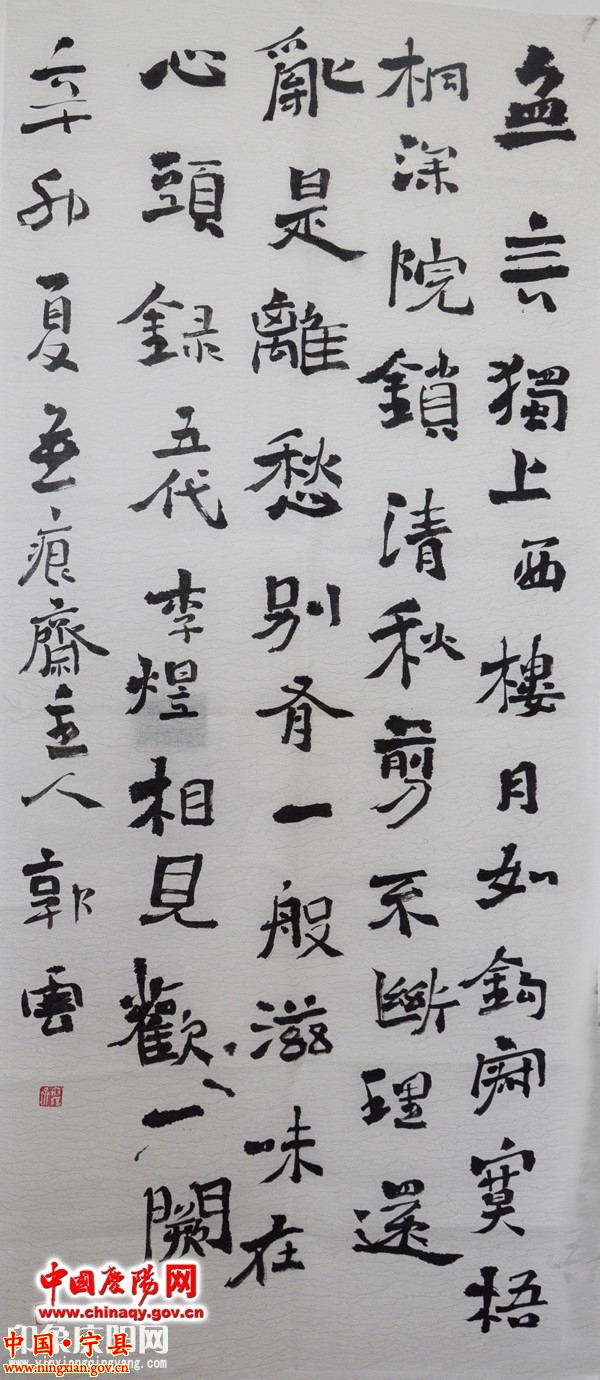 無言獨上西樓月如鈎寂寞梧
桐深院鎖清秋剪不斷理還
亂是離愁别有一般滋味在
心頭録五代李煜相見歡一闋
辛卯夏無痕齋主人郭雲
中國慶陽网
www.chinaqy.gov.cn
印象庆阳网
www.yinxiangqingyang.com
中国·宁县
www.ningxian.gov.cn